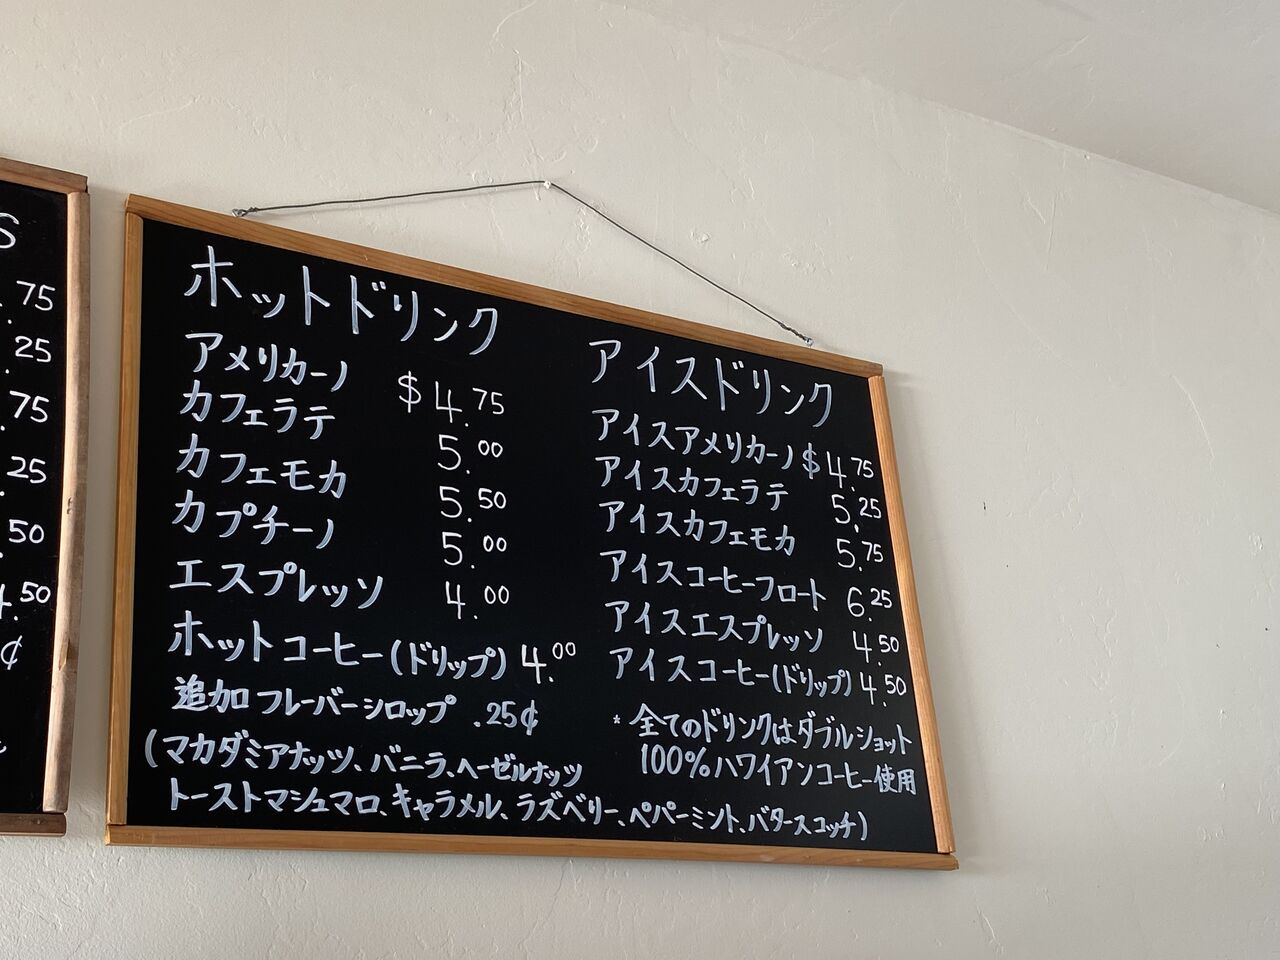 S
.75
.25
.75
.25
.50
4.50
¢
ホットドリンク
アメリカーノ $4.75
カフェラテ 5.00
カフェモカ 5.50
カプチーノ 5.00
エスプレッソ 4.00
ホットコーヒー(ドリップ) 4.00
追加フレーバーシロップ .25¢
(マカダミアナッツ、バニラ、ヘーゼルナッツ
トーストマシュマロ、キャラメル、ラズベリー、ペパーミント、バタースコッチ)
アイスドリンク
アイスアメリカーノ $4.75
アイスカフェラテ 5.25
アイスカフェモカ 5.75
アイスコーヒーフロート 6.25
アイスエスプレッソ 4.50
アイスコーヒー(ドリップ) 4.50
* 全てのドリンクはダブルショット
100%ハワイアンコーヒー使用